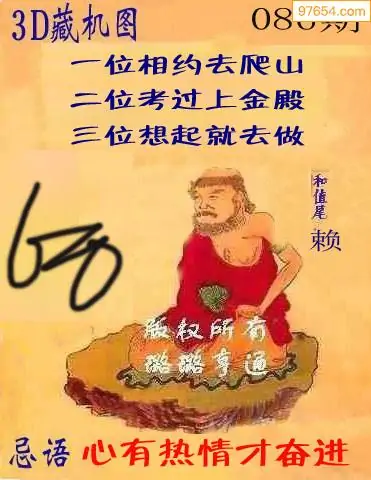 97654.com
3D藏机图
080期
一位相约去爬山
二位考过上金殿
三位想起就去做
和值尾
赖
版权所有
璐璐亨通
忌语 心有热情才奋进